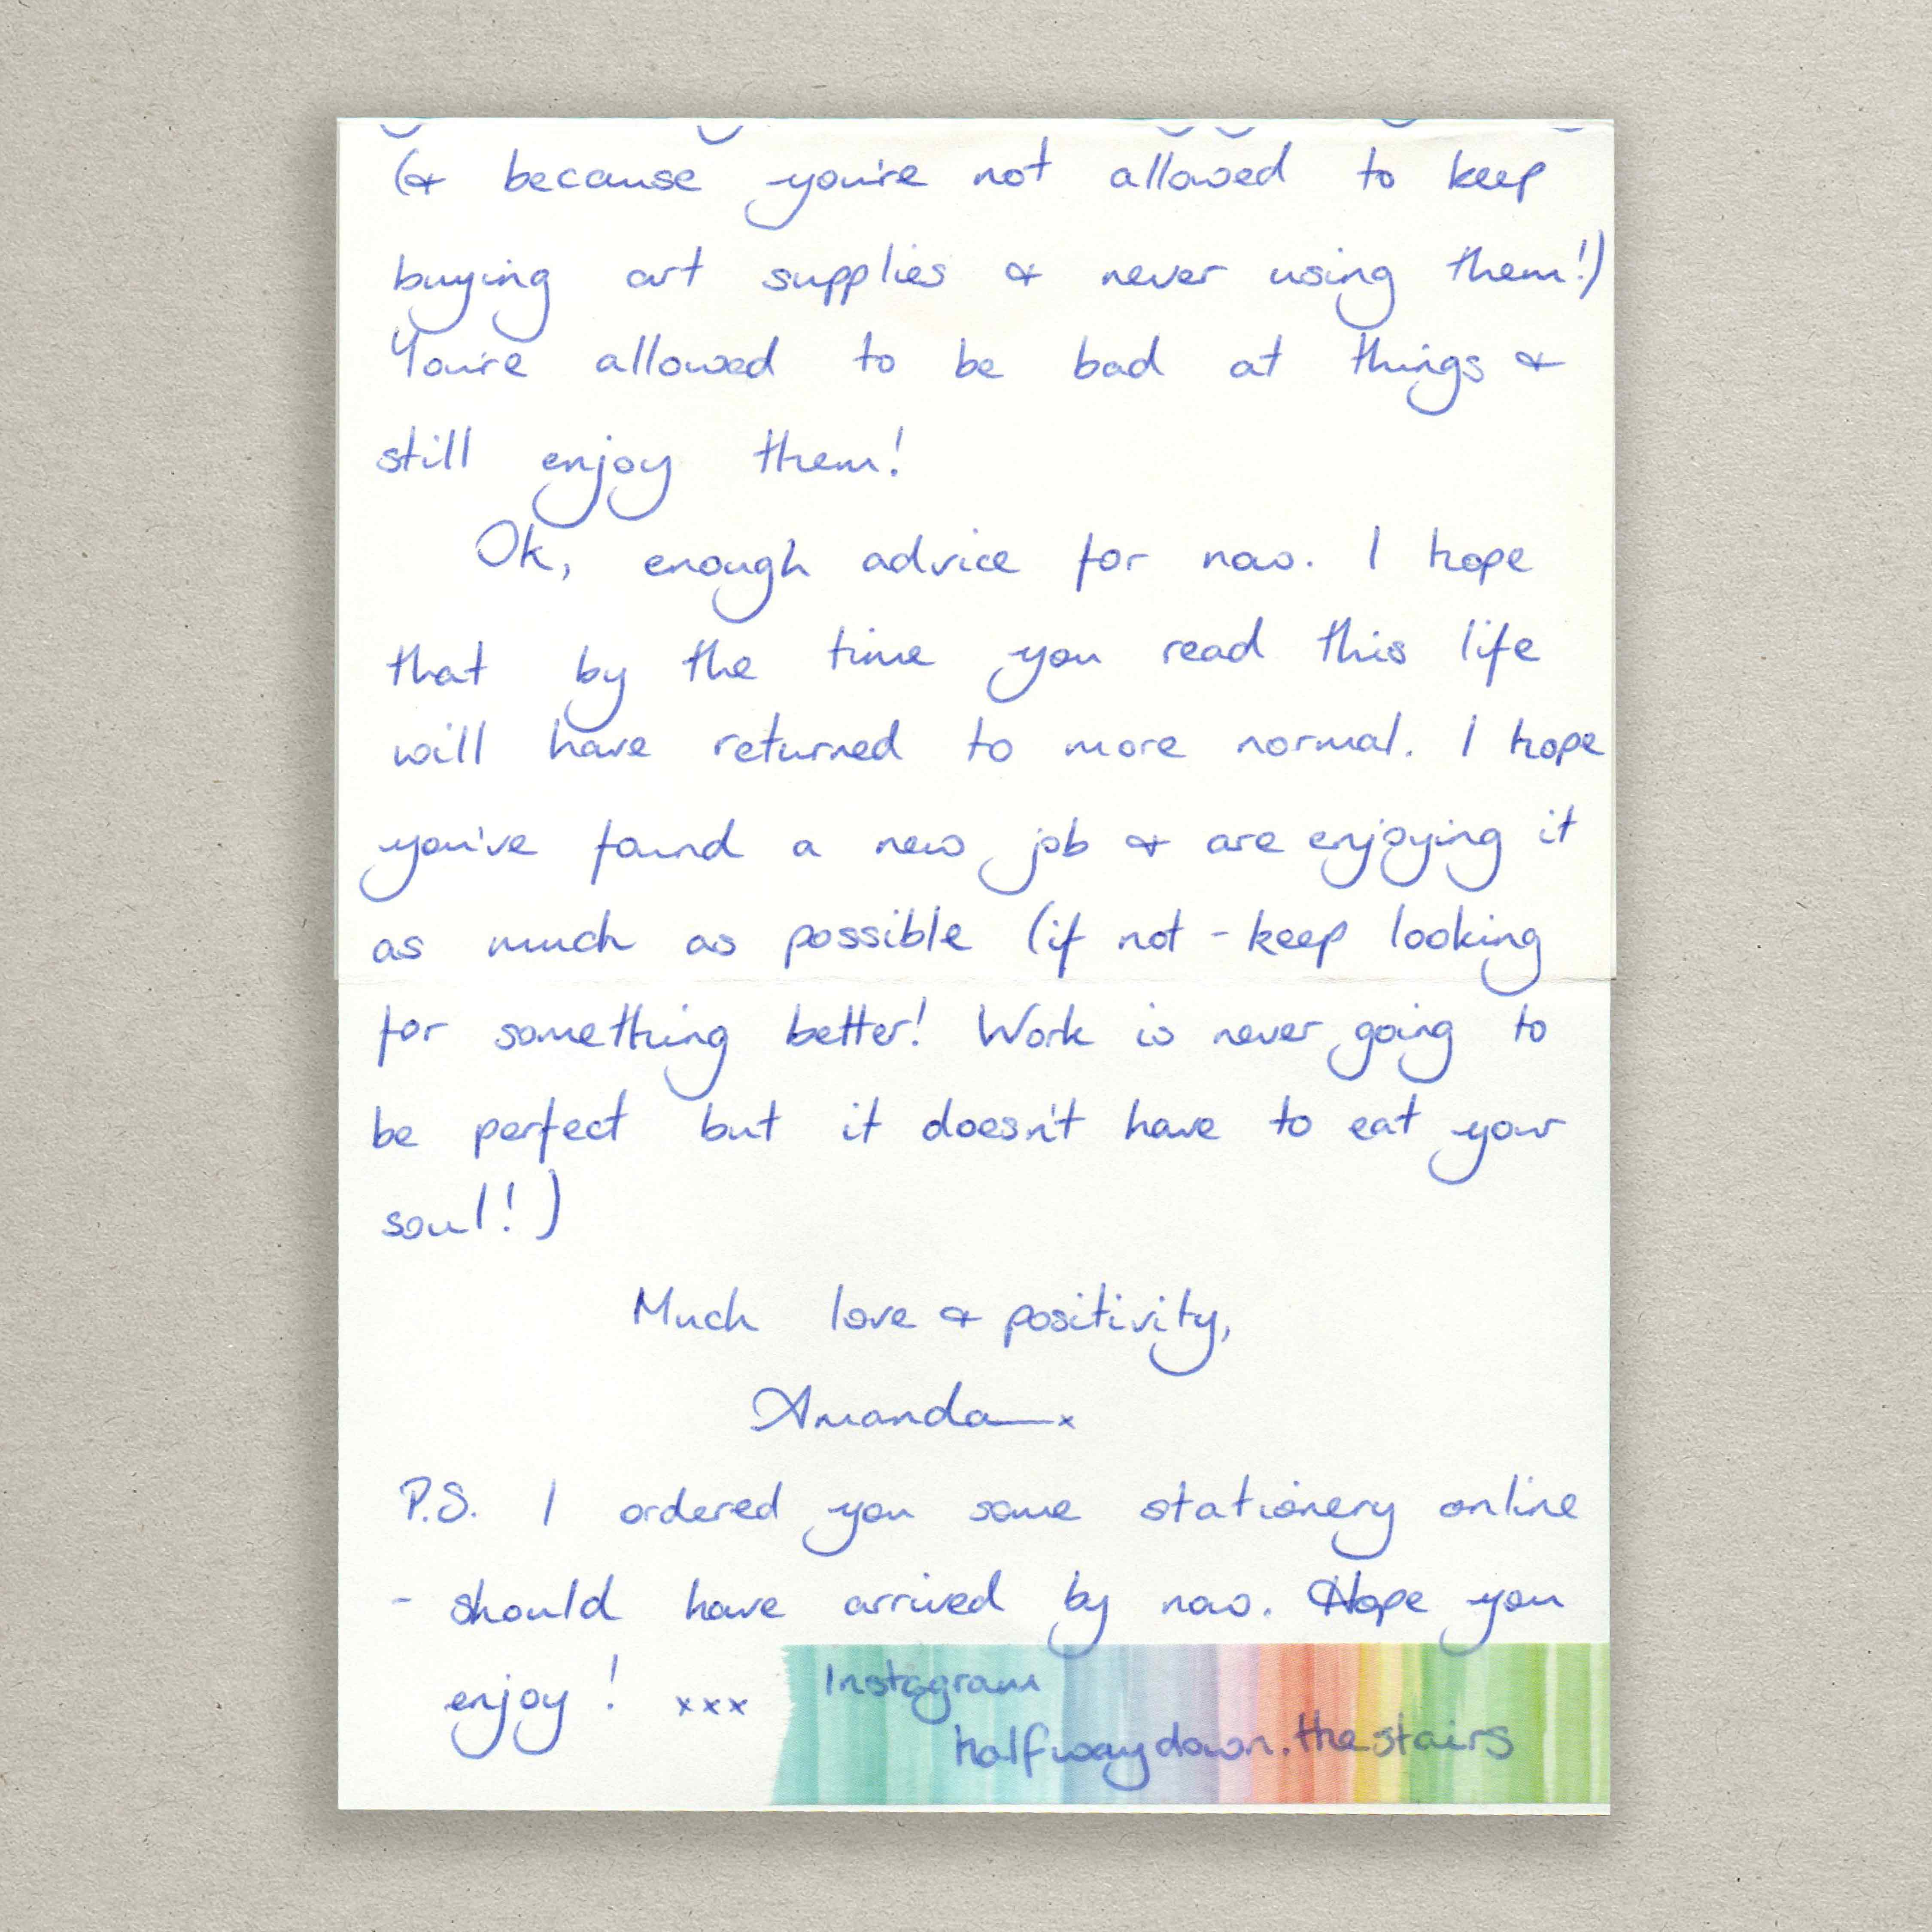 (& because you're not allowed to keep
buying art supplies & never using them!)
You're allowed to be bad at things &
still enjoy them!
Ok, enough advice for now. I hope
that by the time you read this life
will have returned to more normal. I hope
you've found a new job & are enjoying it
as much as possible (if not - keep looking
for something better! Work is never going to
be perfect but it doesn't have to eat your
soul!)
Much love & positivity,
Amanda x
P.S. I ordered you some stationery online
- should have arrived by now. Hope you
enjoy! xxx
Instagram
halfwaydown.thestairs